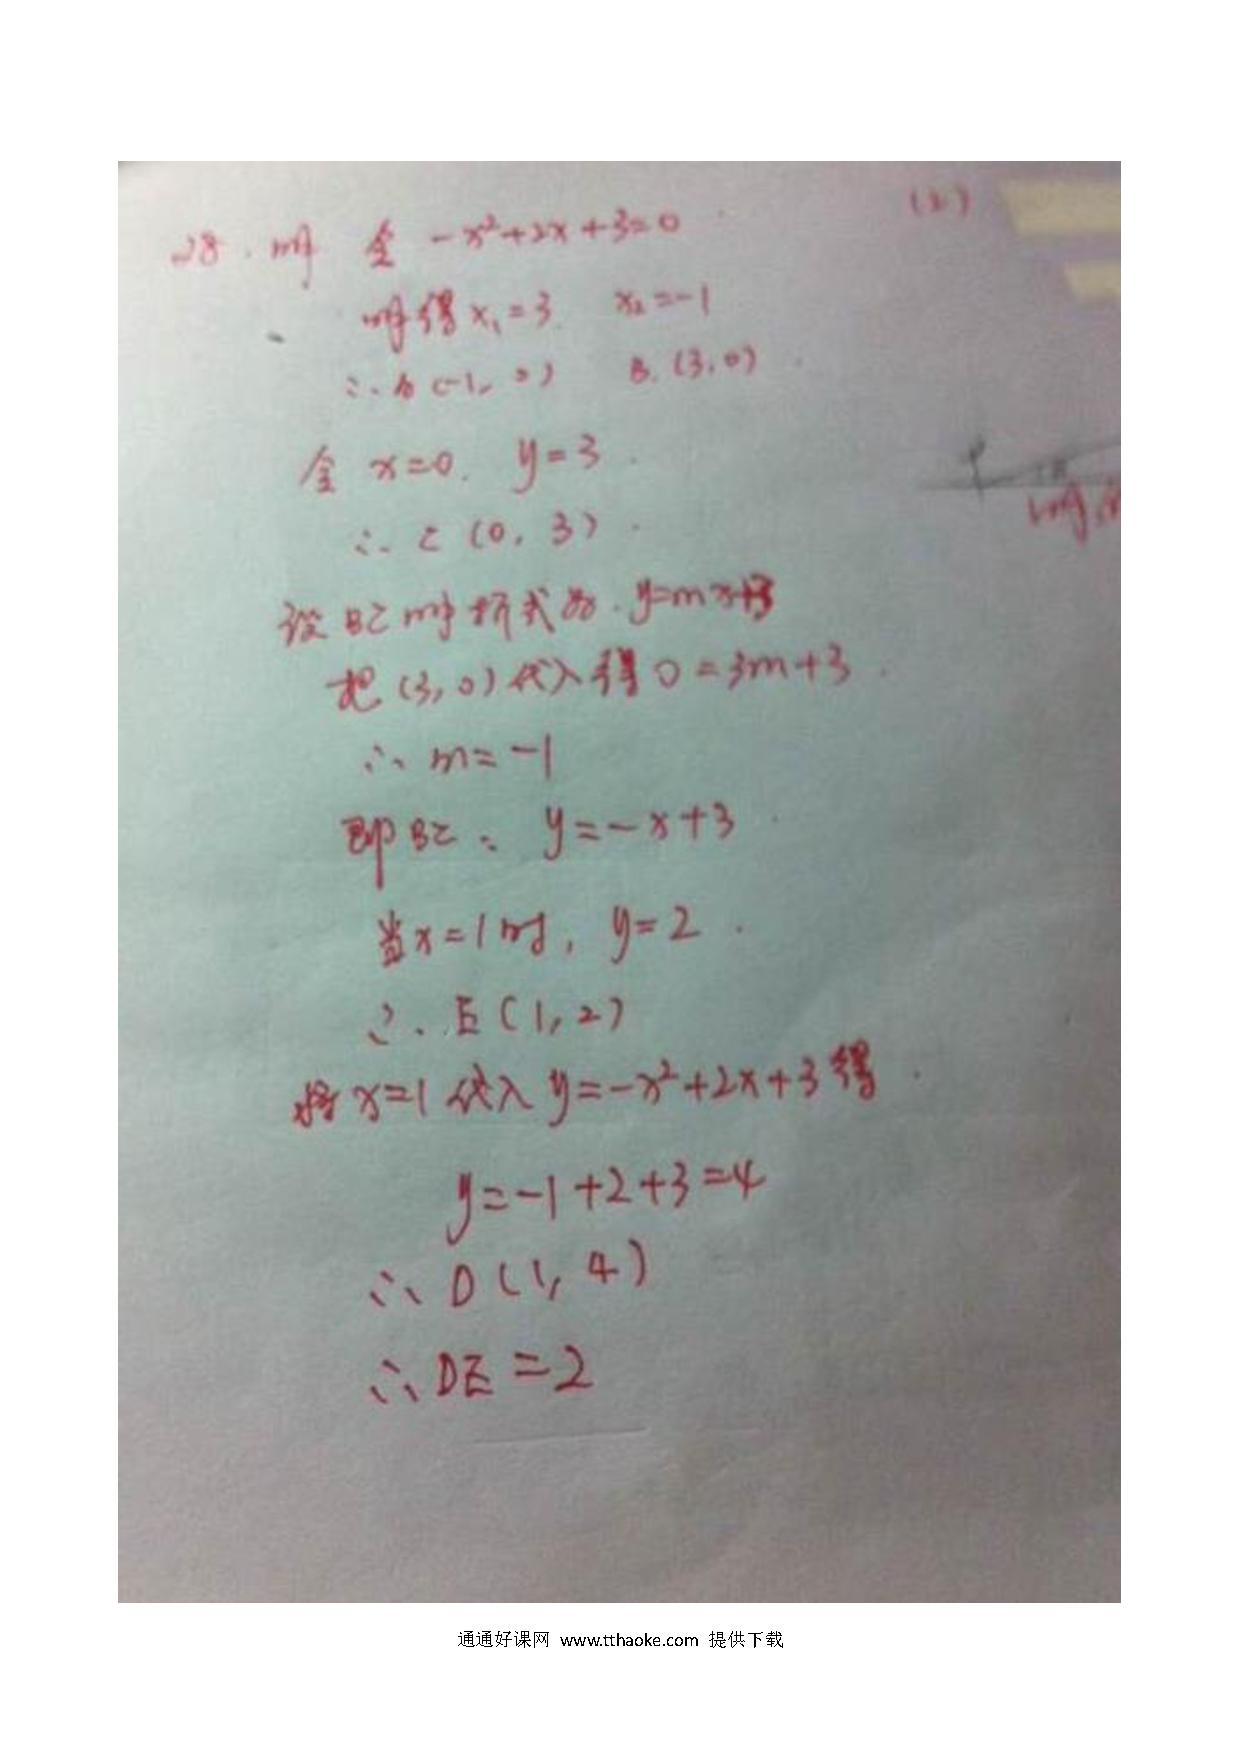 28. 解 令 -x²+2x+3=0
解得 x₁=3. x₂=-1
∴A(-1, 0) B.(3,0)
令 x=0. y=3.
∴C(0, 3).
设BC解析式为. y=mx+3
把(3,0)代入得0=3m+3.
∴m=-1
即BC: y=-x+3
当x=1时, y=2.
∴E(1,2)
将x=1代入y=-x²+2x+3得.
y=-1+2+3=4
∴D(1,4)
∴DE=2
(2)
通通好课网 www.tthaoke.com 提供下载